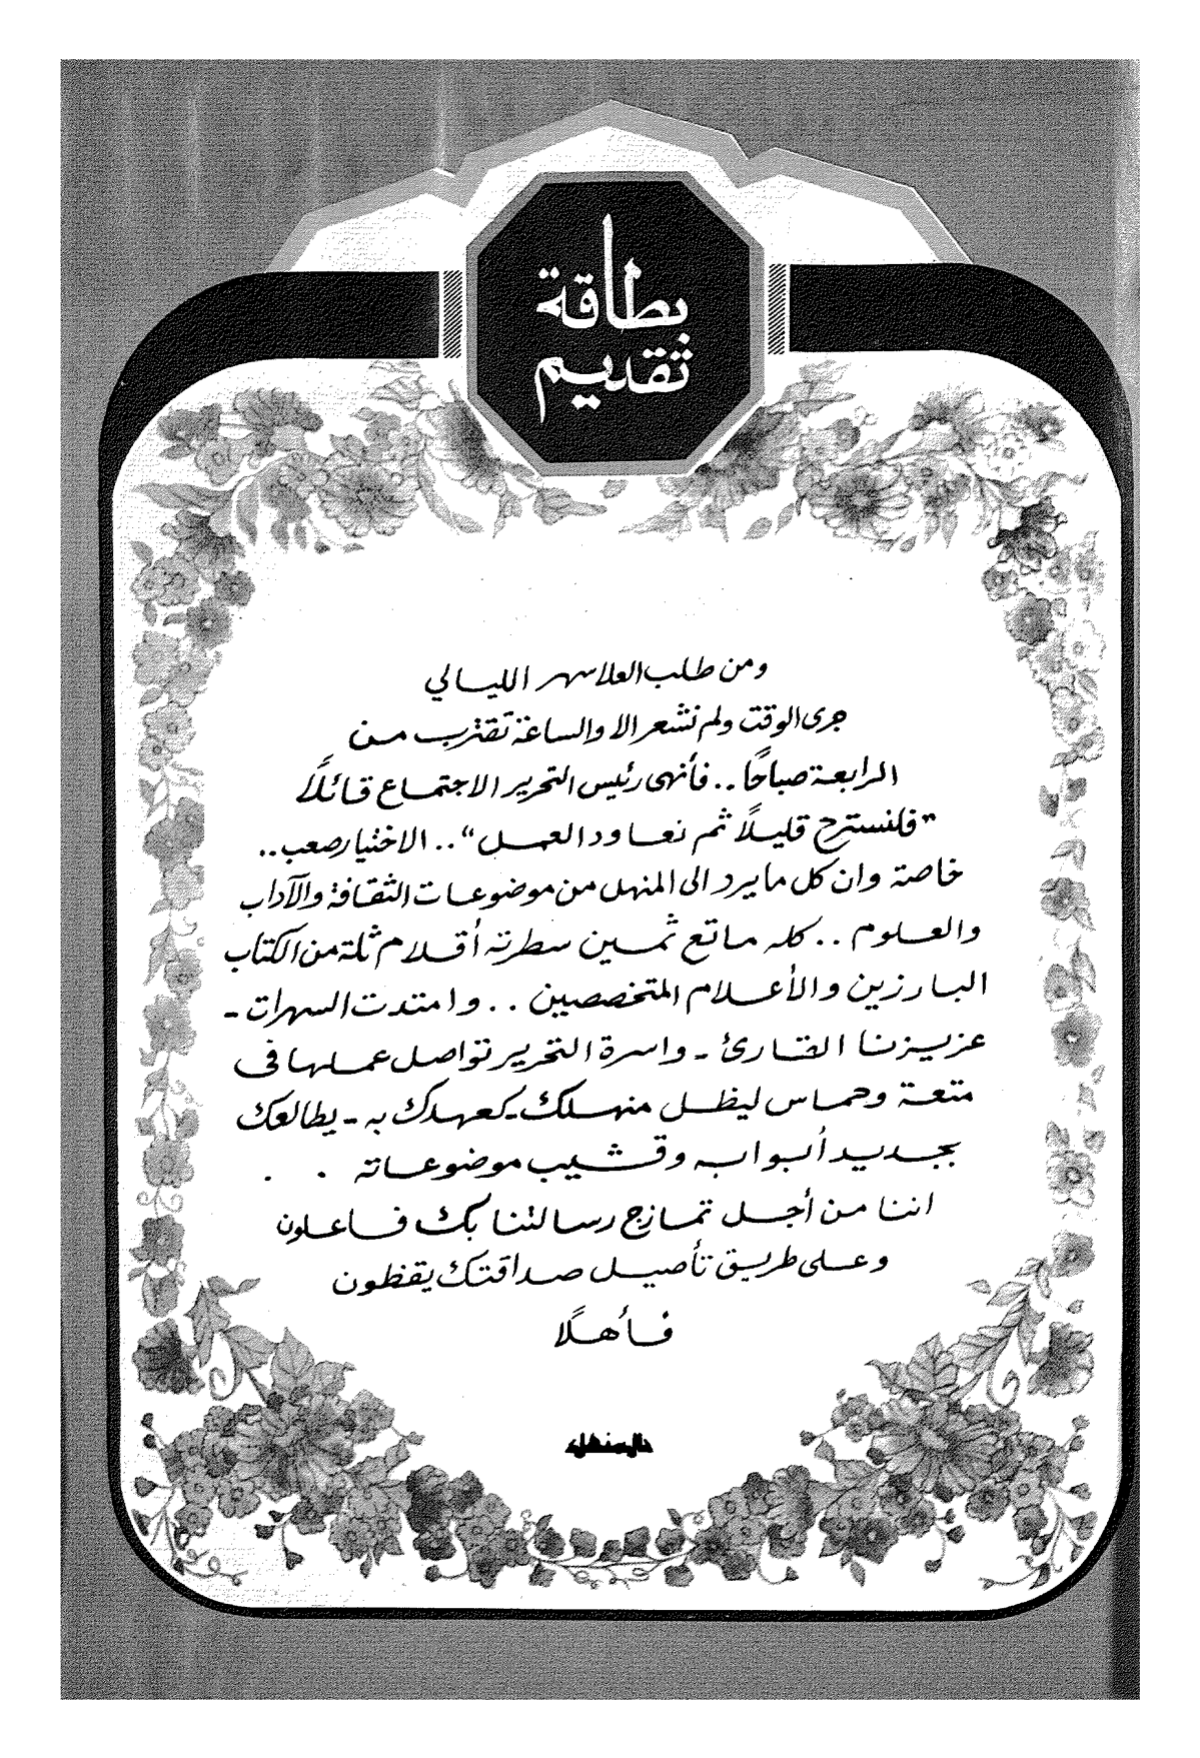 بطاقة
تقديم
ومن طلب العلا سهر الليالي
جرى الوقت ولم نشعر الا والساعة تقترب من
الرابعة صباحًا .. فأنهى رئيس التحرير الاجتماع قائلاً
"فلنسترح قليلاً ثم نعاود العمل" .. الاختيار صعب ..
خاصة وان كل ما يرد الى المنهل من موضوعات الثقافة والآداب
والعلوم .. كله ماتع ثمين سطرته أقلام ثلة من الكتاب
البارزين والأعلام المتخصصين .. وامتدت السهرات -
عزيزنا القارئ - واسرة التحرير تواصل عملها في
متعة وحماس ليظل منهلك - كعهدك به - يطالعك
بجديد أبوابه وقشيب موضوعاته . .
اننا من أجل تمازج رسالتنا بك فاعلون
وعلى طريق تأصيل صداقتك يقظون
فأهلاً
المنهل